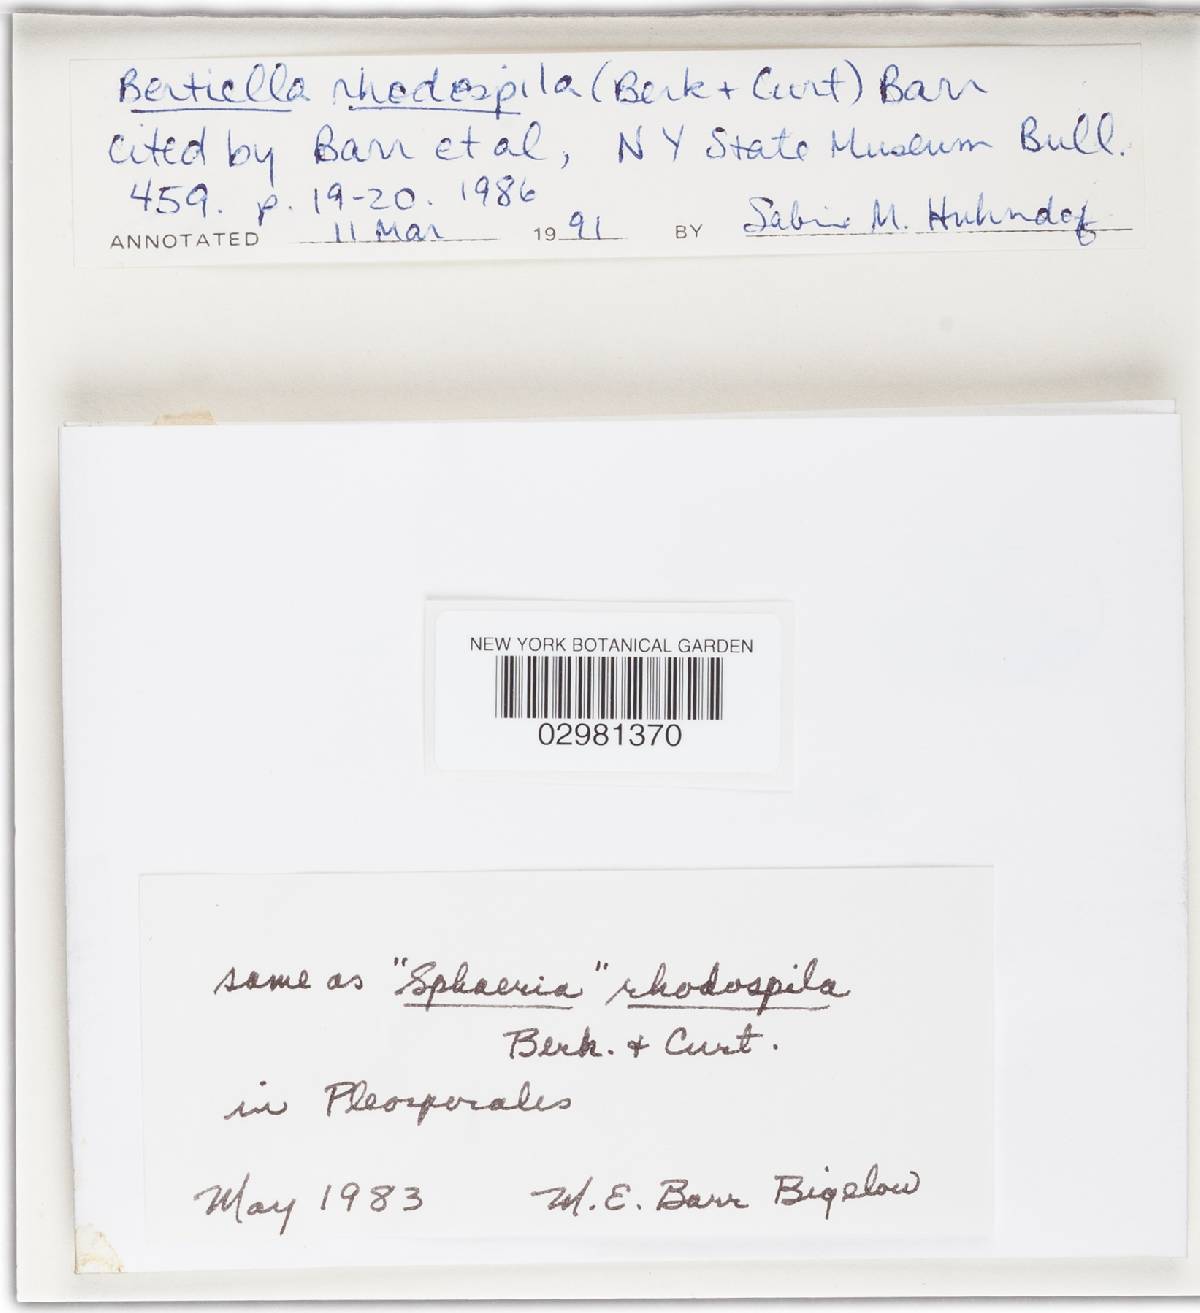 Bertiella rhodospila (Berk + Curt) Barr
cited by Barr et al, NY State Museum Bull.
459. p. 19-20. 1986
ANNOTATED 11 Mar 1991 BY Sabine M. Huhndorf
NEW YORK BOTANICAL GARDEN
02981370
same as "Sphaeria" rhodospila
Berk. + Curt.
in Pleosporales
May 1983 M.E. Barr Bigelow